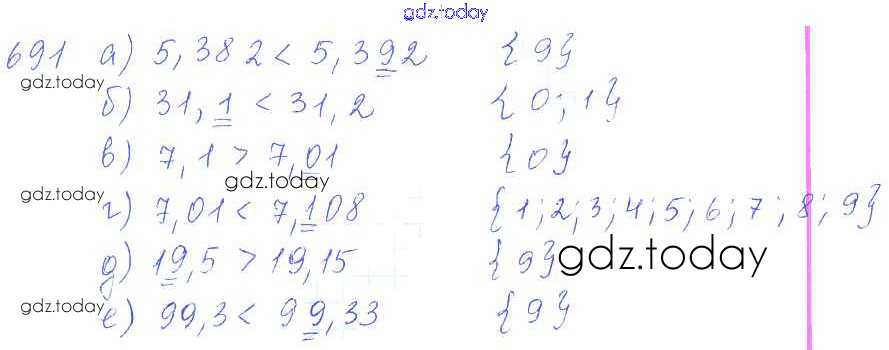 gdz.today
691 а) 5,382 < 5,392 {9}
gdz.today
б) 31,1 < 31,2 {0; 1}
в) 7,1 > 7,01 {0}
gdz.today
gdz.today г) 7,01 < 7,108 {1; 2; 3; 4; 5; 6; 7; 8; 9}
д) 19,5 > 19,15 {9} gdz.today
gdz.today е) 99,3 < 99,33 {9}